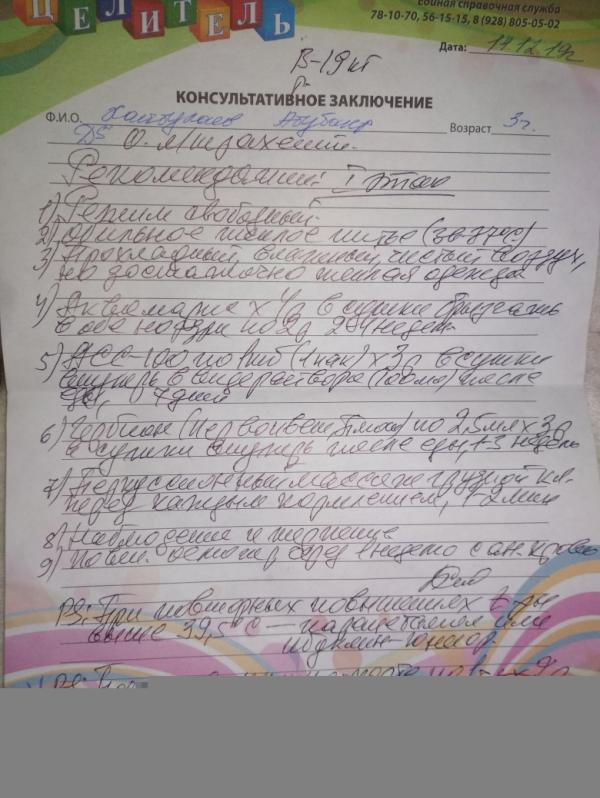 ЦЕЛИТЕЛЬ
Единая справочная служба
78-10-70, 56-15-15, 8 (928) 805-05-02
Дата: 11.12.19г
В-19кг
КОНСУЛЬТАТИВНОЕ ЗАКЛЮЧЕНИЕ
Ф.И.О. Возраст 3г.
DS О.
Рекомендации: I этап
1) Режим свободный.
2) обильное теплое питье
3) Прохладный, влажный, чистый воздух,
но достаточно теплая одежда
4) Аквамарис х 4р в сутки
в обе ноздри по 2д 2-4 недели
5) АСС-100 по 1таб х 3р в сутки
внутрь в виде раствора после
еды, 7 дней
6) Гербион (первоцвет) по 2,5мл х 3р
в сутки внутрь после еды, 1-3 недель
7) Перкуссионный массаж грудной кл.
перед каждым кормлением, 1-2 мин
8) Наблюдение
9) Повт. осмотр через 1 неделю с ан. крови
PS: При повторных повышениях t° тела
выше 39,5°С — парацетамол или
ибуклин-юниор.